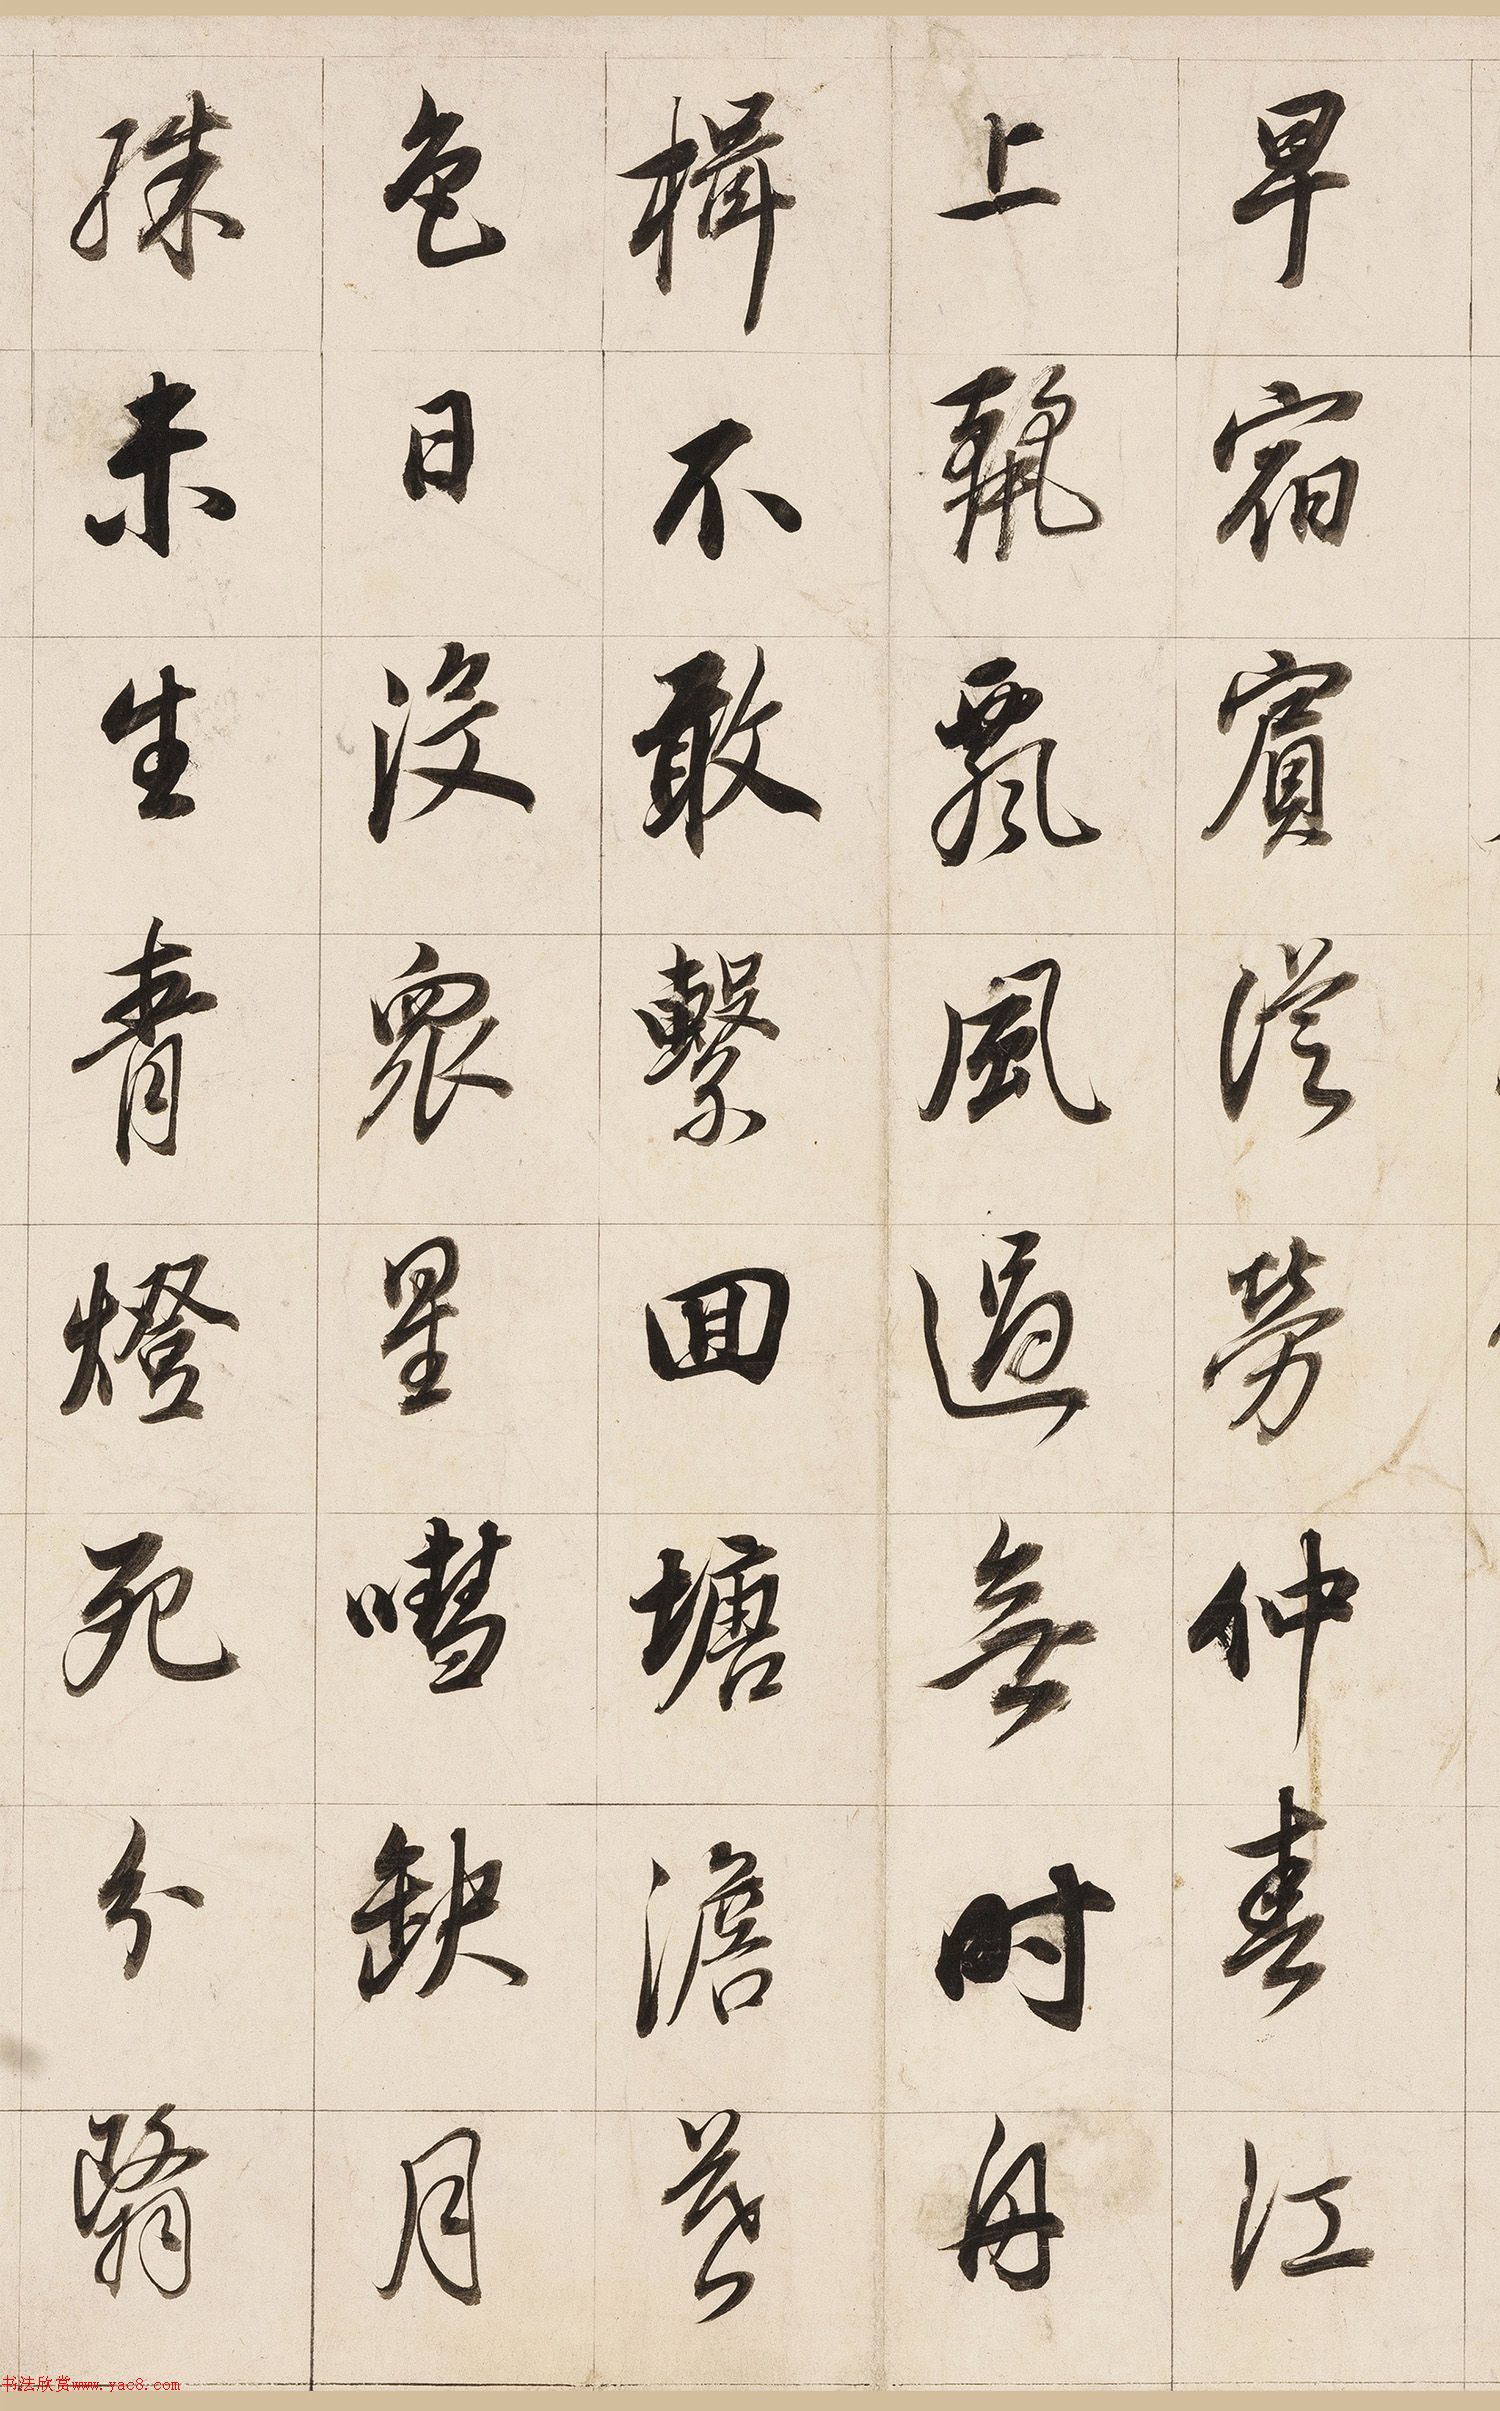 早宿賓從勞仲春江
上飄風過無時舟
楫不敢繫回塘澹暮
色日沒眾星嘒缺月
殊未生青燈死分翳
书法欣赏www.yac8.com